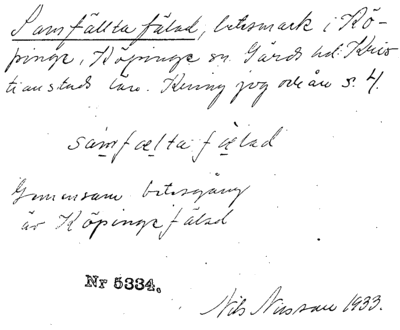 Samfällta fälad, betesmark i Kö-
pinge, Köpinge sn. Gärds hd. Kris
tianstads län. Kring jog och ån s. 4.
samfælta fælad
Gemensam betesgång
är Köpinge fälad
Nr 5334.
Nils Nilsson 1933.